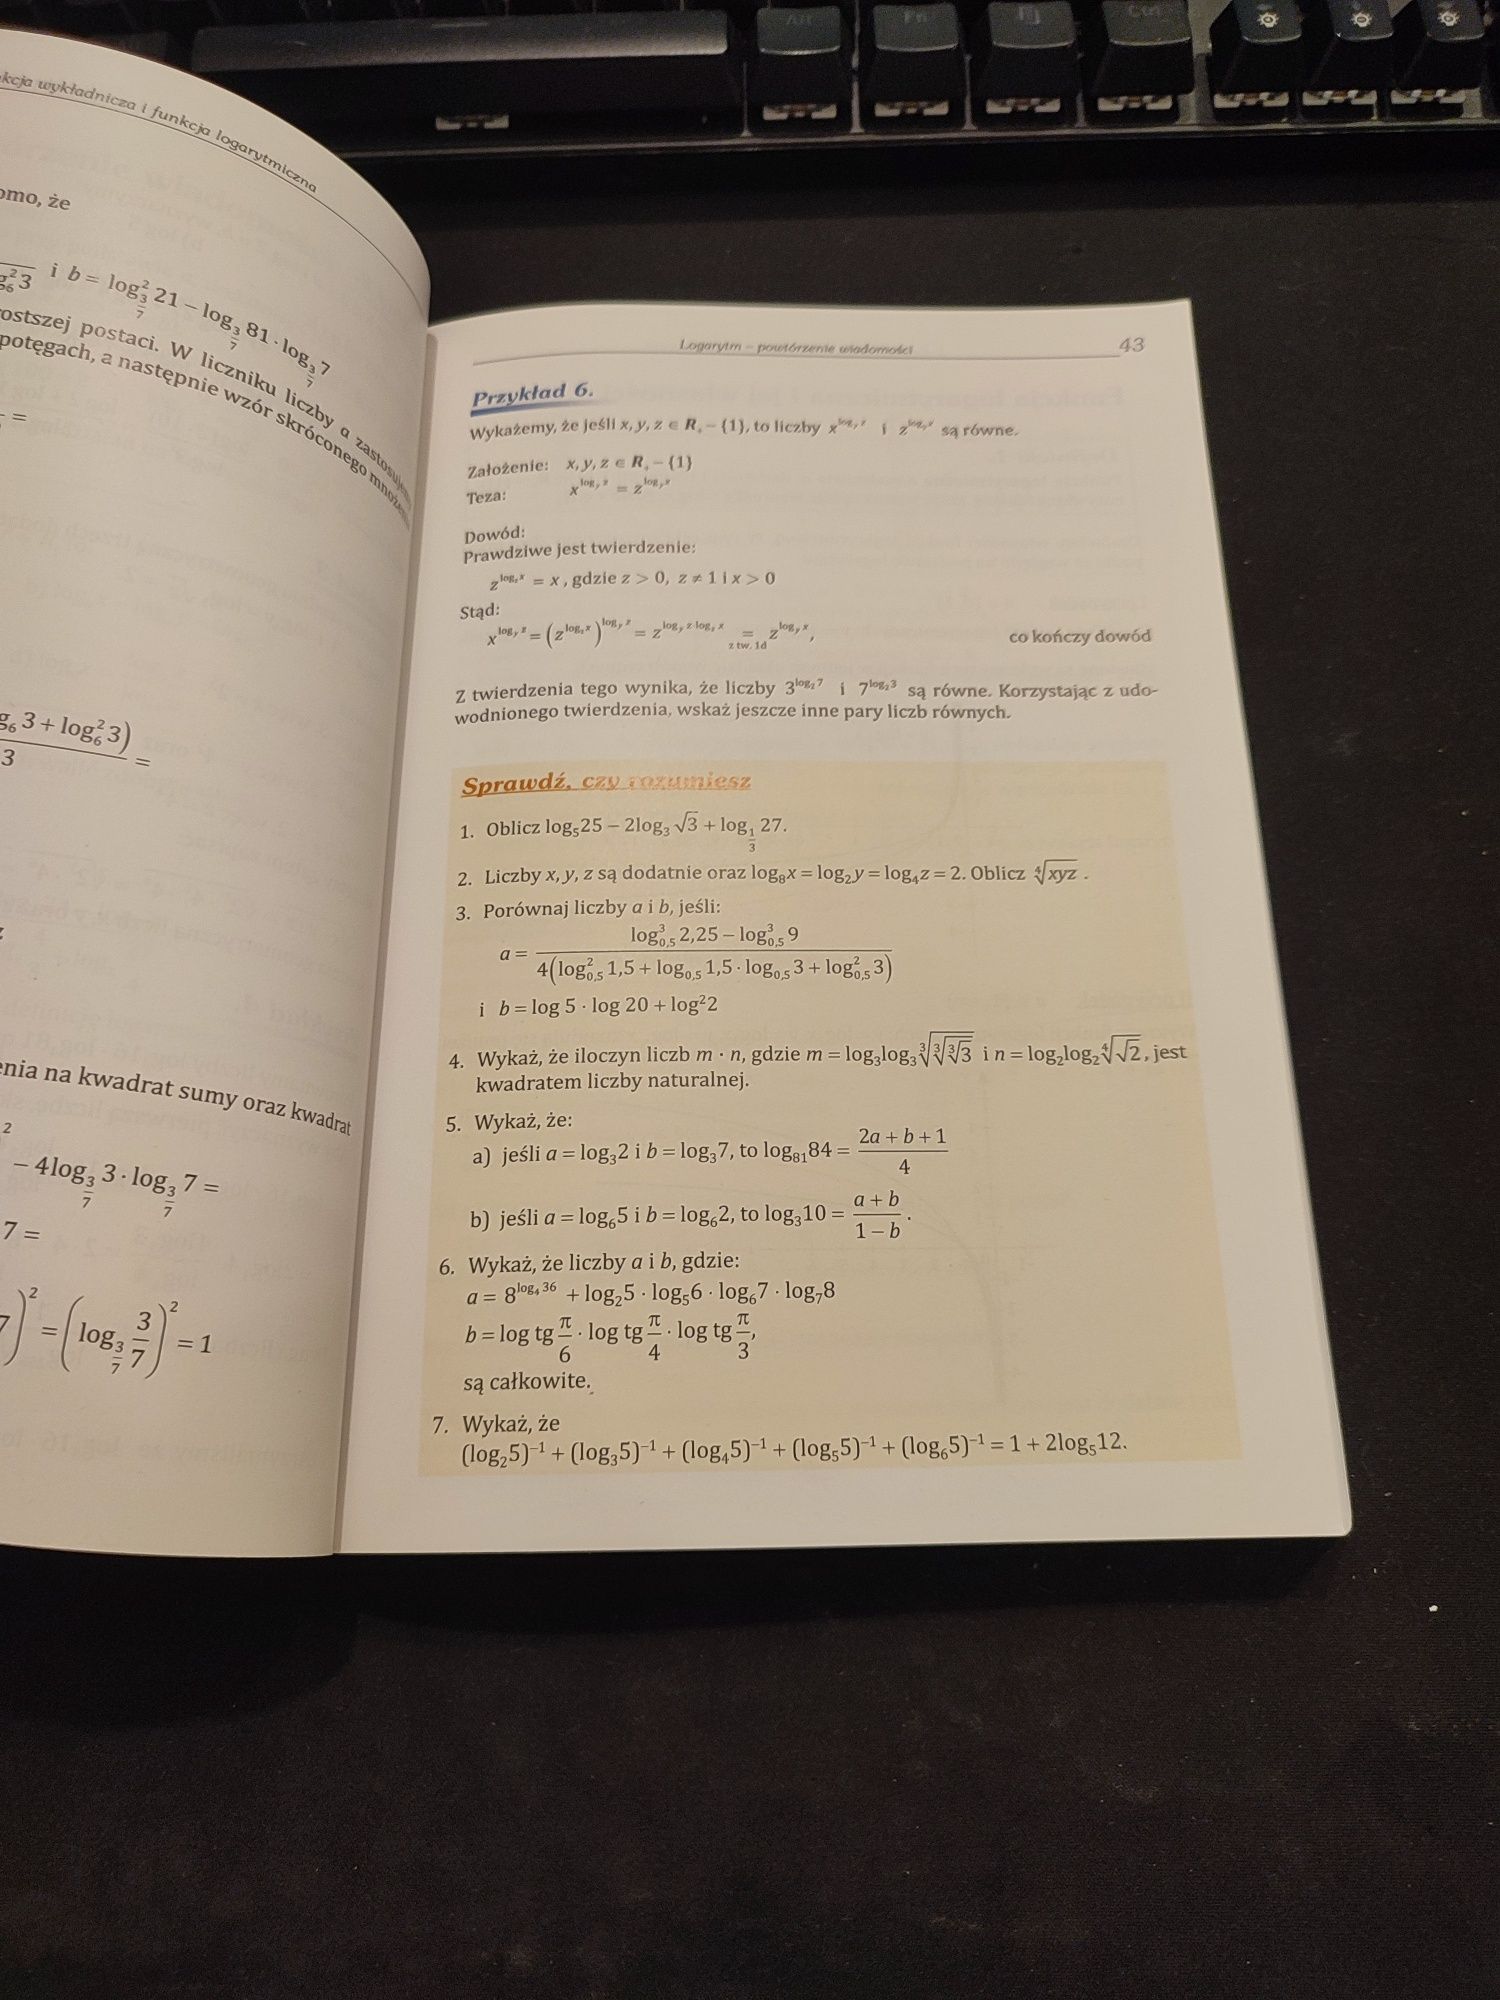 funkcja wykładnicza i funkcja logarytmiczna
że
i b = log²_{3/7} 21 – log_{3/7} 81 · log_{3/7} 7
postaci. W liczniku liczby a zastosujemy
potęgach, a następnie wzór skróconego mnożenia
=
3 + log₆² 3)
3
=
na kwadrat sumy oraz kwadrat
– 4log_{3/7} 3 · log_{3/7} 7 =
7 =
)² = (log_{3/7} 3/7)² = 1
Logarytm – powtórzenie wiadomości 43
Przykład 6.
Wykażemy, że jeśli x, y, z ∈ R₊ – {1}, to liczby x^{log_y z} i z^{log_y x} są równe.
Założenie: x, y, z ∈ R₊ – {1}
Teza: x^{log_y z} = z^{log_y x}
Dowód:
Prawdziwe jest twierdzenie:
z^{log_z x} = x, gdzie z > 0, z ≠ 1 i x > 0
Stąd:
x^{log_y z} = (z^{log_z x})^{log_y z} = z^{log_y z · log_z x} = z^{log_y x}, co kończy dowód
z tw. 1d
Z twierdzenia tego wynika, że liczby 3^{log₂7} i 7^{log₂3} są równe. Korzystając z udo-
wodnionego twierdzenia, wskaż jeszcze inne pary liczb równych.
Sprawdź, czy rozumiesz
1. Oblicz log₅25 – 2log₃√3 + log_{1/3} 27.
2. Liczby x, y, z są dodatnie oraz log₈x = log₂y = log₄z = 2. Oblicz ∜xyz .
3. Porównaj liczby a i b, jeśli:
a = (log³_{0,5} 2,25 – log³_{0,5} 9) / 4(log²_{0,5} 1,5 + log_{0,5} 1,5 · log_{0,5} 3 + log²_{0,5} 3)
i b = log 5 · log 20 + log²2
4. Wykaż, że iloczyn liczb m · n, gdzie m = log₃log₃∛∛∛3 i n = log₂log₂∜√2, jest
kwadratem liczby naturalnej.
5. Wykaż, że:
a) jeśli a = log₃2 i b = log₃7, to log₈₁84 = (2a + b + 1)/4
b) jeśli a = log₆5 i b = log₆2, to log₃10 = (a + b)/(1 – b).
6. Wykaż, że liczby a i b, gdzie:
a = 8^{log₄36} + log₂5 · log₅6 · log₆7 · log₇8
b = log tg π/6 · log tg π/4 · log tg π/3,
są całkowite.
7. Wykaż, że
(log₂5)⁻¹ + (log₃5)⁻¹ + (log₄5)⁻¹ + (log₅5)⁻¹ + (log₆5)⁻¹ = 1 + 2log₅12.